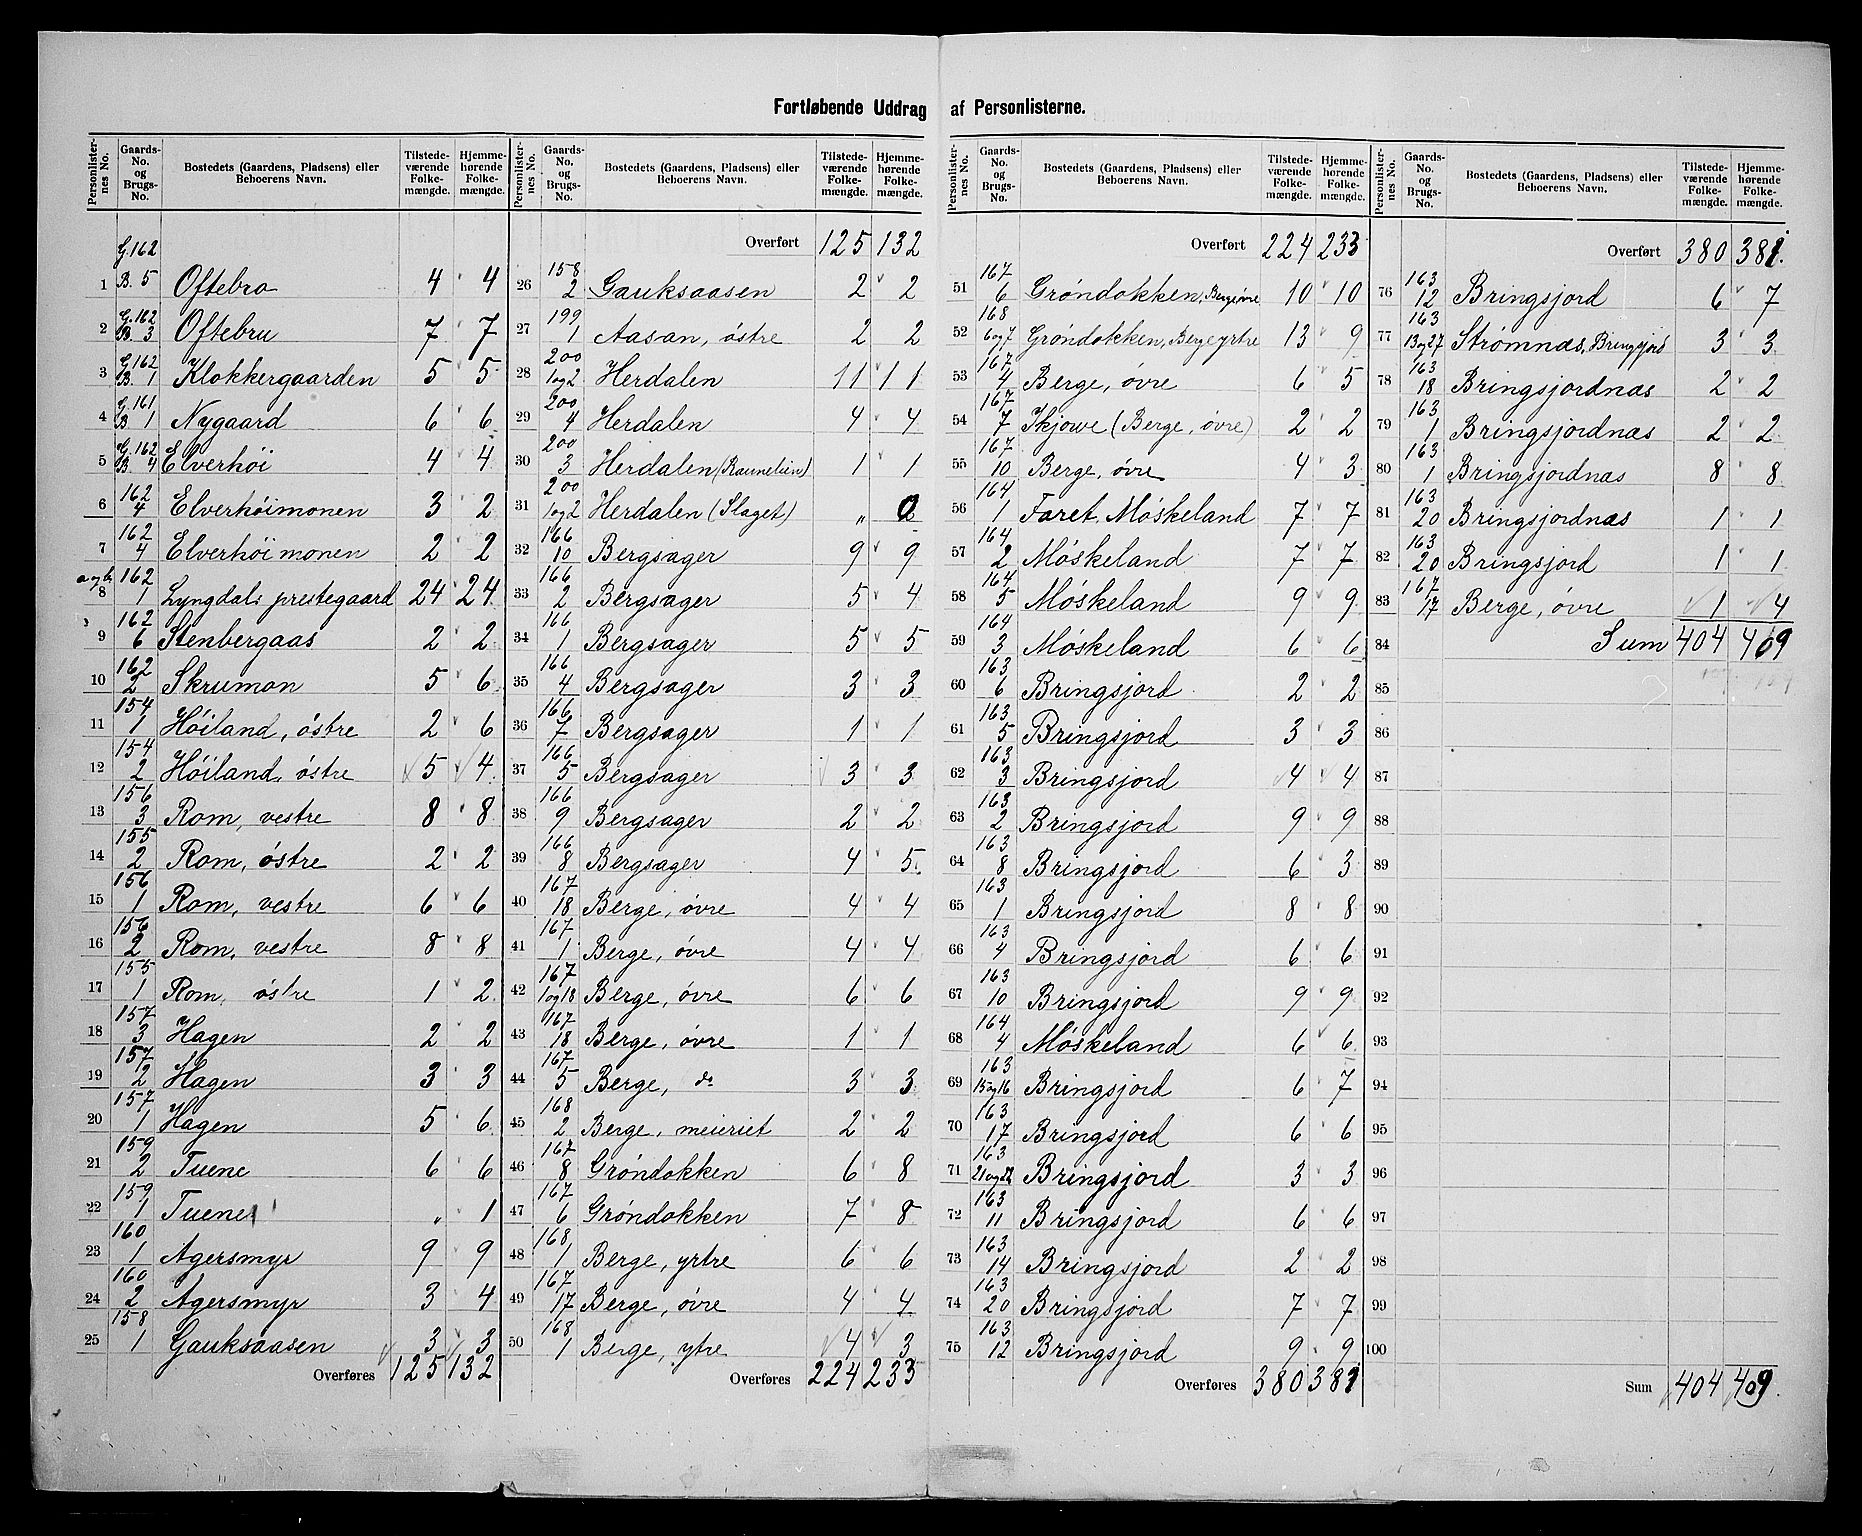 Fortløbende Uddrag af Personlisterne.
Personlister-nes No. | Gaards-No. og Brugs-No. | Bostedets (Gaardens, Pladsens) eller Beboerens Navn. | Tilstede-værende Folke-mængde. | Hjemme-hørende Folke-mængde.
1 G.162 B.5 Oftebro 4 4
2 G.162 B.3 Oftebru 7 7
3 G.162 B 1 Klokkergaarden 5 5
4 G.161 B 1 Nygaard 6 6
5 G.162 B. 4 Elverhöi 4 4
6 162 4 Elverhöimonen 3 2
7 162 4 Elverhöimonen 2 2
a og b 8 162 1 Lyngdals prestegaard 24 24
9 162 6 Stenbergaas 2 2
10 162 2 Skrumon 5 6
11 154 1 Höiland, östre 2 6
12 154 2 Höiland, östre 5 4
13 156 3 Rom, vestre 8 8
14 155 2 Rom, östre 2 2
15 156 1 Rom, vestre 6 6
16 156 2 Rom, vestre 8 8
17 155 1 Rom, östre 1 2
18 157 3 Hagen 2 2
19 157 2 Hagen 3 3
20 157 1 Hagen 5 6
21 159 2 Tuene 6 6
22 159 1 Tuene „ 1
23 160 1 Agersmyr 9 9
24 160 2 Agersmyr 3 4
25 158 1 Gauksaasen 3 3
Overføres 125 132
Personlister-nes No. | Gaards-No. og Brugs-No. | Bostedets (Gaarden, Pladsens) eller Beboerens Navn. | Tilstede-værende Folke-mængde. | Hjemme-hørende Folke-mængde.
Overført 125 132
26 158 2 Gauksaasen 2 2
27 199 1 Aasan, östre 2 2
28 200 1og2 Herdalen 11 11
29 200 4 Herdalen 4 4
30 200 3 Herdalen (Raunelien) 1 1
31 200 1og2 Herdalen (Slaget) „ 0
32 166 10 Bergsager 9 9
33 166 2 Bergsager 5 4
34 166 1 Bergsager 5 5
35 166 4 Bergsager 3 3
36 166 7 Bergsager 1 1
37 166 5 Bergsager 3 3
38 166 9 Bergsager 2 2
39 166 8 Bergsager 4 5
40 167 18 Berge, övre 4 4
41 167 1 Berge, övre 4 4
42 167 1og18 Berge, övre 6 6
43 167 18 Berge, övre 1 1
44 167 5 Berge, do 3 3
45 168 2 Berge, meieriet 2 2
46 167 8 Gröndokken 6 8
47 167 6 Gröndokken 7 8
48 168 1 Berge, yrtre 6 6
49 167 17 Berge, övre 4 4
50 168 1 Berge, ytre 4 3
Overføres 224 233
Personlister-nes No. | Gaards-No. og Brugs-No. | Bostedets (Gaardens, Pladsens) eller Beboerens Navn. | Tilstede-værende Folke-mængde. | Hjemme-hørende Folke-mængde.
Overført 224 233
51 167 6 Gröndokken, 10 10
52 168 6og7 Gröndokken, Berge yrtre 13 9
53 167 4 Berge, övre 6 5
54 167 7 (Berge, övre) 2 2
55 167 10 Berge, övre 4 3
56 164 1 Faret, Möskeland 7 7
57 164 2 Möskeland 7 7
58 164 5 Möskeland 9 9
59 164 3 Möskeland 6 6
60 163 6 Bringsjord 2 2
61 163 5 Bringsjord 3 3
62 163 3 Bringsjord 4 4
63 163 2 Bringsjord 9 9
64 163 8 Bringsjord 6 3
65 163 1 Bringsjord 8 8
66 163 4 Bringsjord 6 6
67 163 10 Bringsjord 9 9
68 164 4 Möskeland 6 6
69 163 15og16 Bringsjord 6 7
70 163 17 Bringsjord 6 6
71 163 21og22 Bringsjord 3 3
72 163 11 Bringsjord 6 6
73 163 14 Bringsjord 2 2
74 163 20 Bringsjord 7 7
75 163 12 Bringsjord 9 9
Overføres 380 381
Personlister-nes No. | Gaards-No. og Brugs-No. | Bostedets (Gaardens, Pladsens) eller Beboerens Navn. | Tilstede-værende Folke-mængde. | Hjemme-hørende Folke-mængde.
Overført 380 381.
76 163 12 Bringsjord 6 7
77 163 13og27 Strömnas, Bringsjord 3 3
78 163 18 Bringsjordnas 2 2
79 163 1 Bringsjordnas 2 2
80 163 1 Bringsjordnas 8 8
81 163 20 Bringsjordnas 1 1
82 163 20 Bringsjord 1 1
83 167 17 Berge, övre 1 4
84 Sum 404 409
85
86
87
88
89
90
91
92
93
94
95
96
97
98
99
100
Sum 404 409